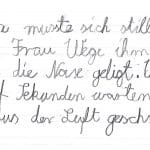 a musste sich still
Frau Wege ihm
die Nase gelegt.
f Sekunden warten
aus der Luft gesch